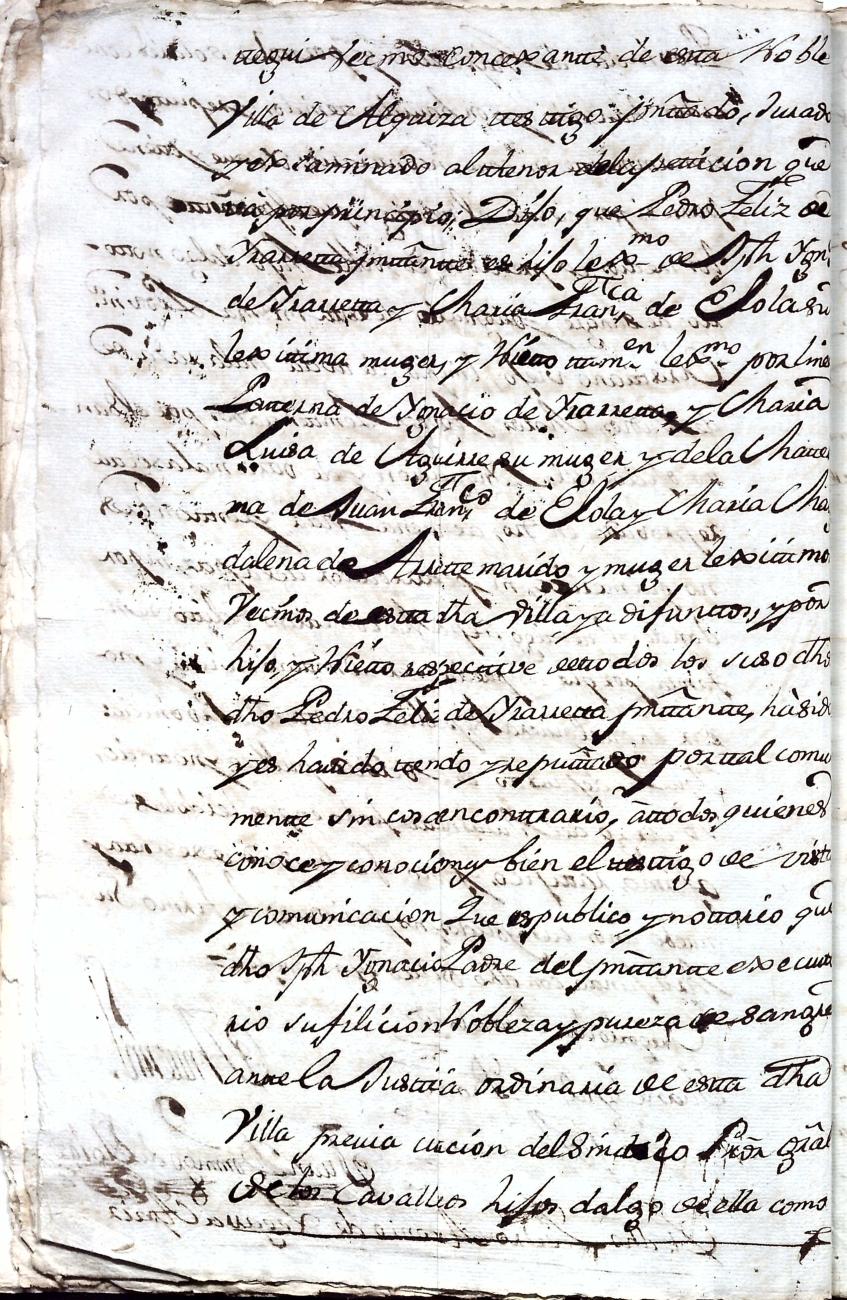 ttegui Vecino concexante de esta Noble
Villa de Alquiza testtigo pñttado, Jurado
y examinado al ttenor dela petticion que
va por principio; Dijo, que Pedro Feliz de
Yrarretta pñttante es hijo lexmo de Jph Ygn
de Yrarretta y Maria Franca de Elola su
lexitima muger, y Nietto ttamen lexmo por linea
Patterna de Ygnacio de Yrarretta, y Maria
Luisa de Aguirre su muger, y dela Matter
na de Juan Franco de Elola y Maria Ma
dalena de Arrutte marido y muger lexitimos
Vecinos de estta dha Villa ya difunttos, y por
hijo, y Nietto respective de ttodos los suso dhos
dho Pedro Feliz de Yrarretta pñttante, hà sido
y es havido ttenido y reputtado por ttal comun
mentte sin cosa encontrario, à ttodos quienes
conoce y conocio muy bien el testtigo de vista
y comunicacion Que es publico y nottorio que
dho Jph Ygnacio Padre del pñttante executto
rio su filicion Nobleza y pureza de sangre
antte la Justtizia ordinaria de estta dha
Villa previa cittacion del Sindico Pror gral
de los Cavalleros hijos dalgo de ella como